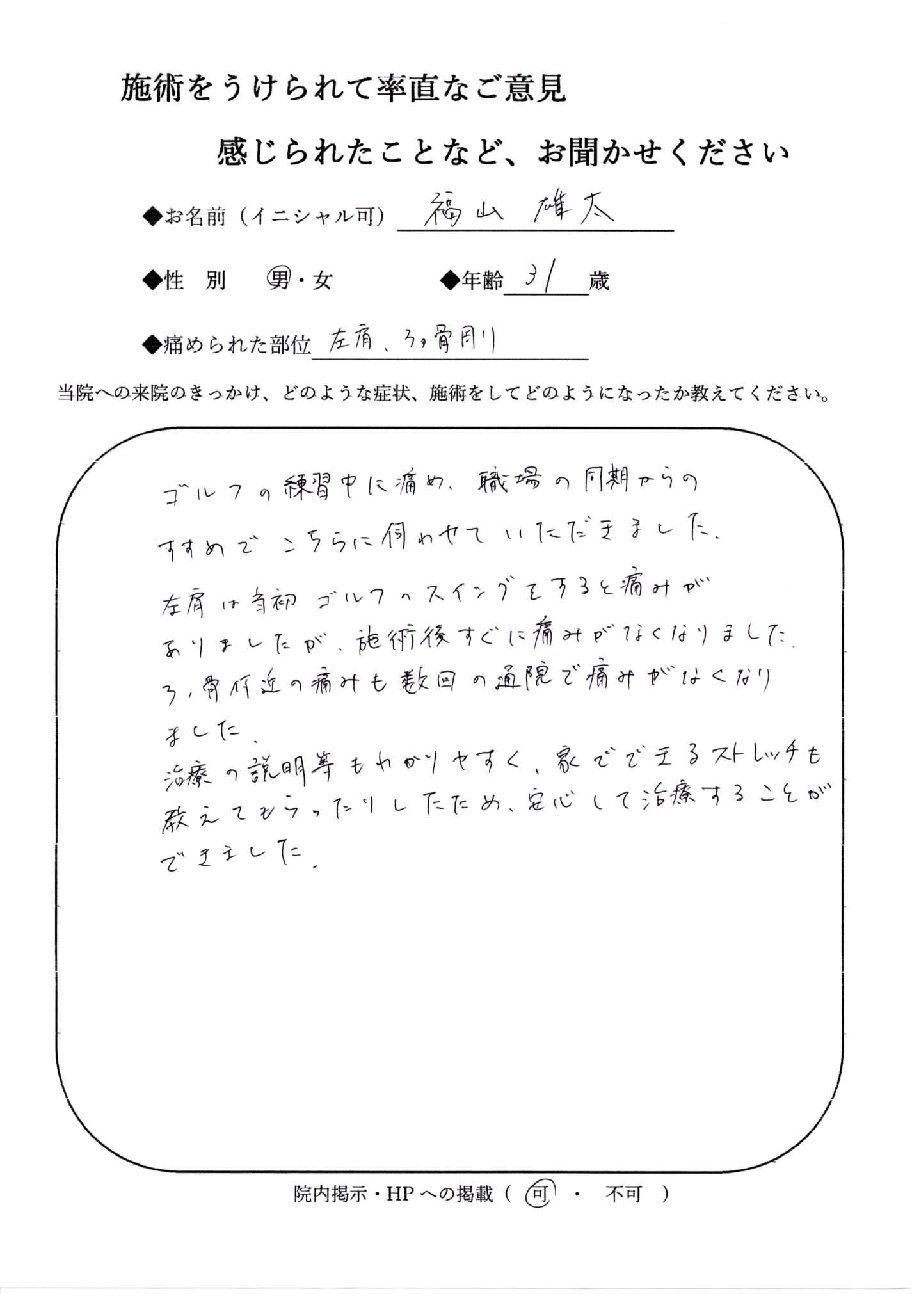 施術をうけられて率直なご意見
感じられたことなど、お聞かせください
◆お名前（イニシャル可） 福山 雄太
◆性 別 男・女 ◆年齢 31 歳
◆痛められた部位 左肩、ろっ骨周り
当院への来院のきっかけ、どのような症状、施術をしてどのようになったか教えてください。
ゴルフの練習中に痛め、職場の同期からの
すすめでこちらに伺わせていただきました。
左肩は当初ゴルフのスイングをすると痛みが
ありましたが、施術後すぐに痛みがなくなりました。
ろっ骨付近の痛みも数回の通院で痛みがなくなり
ました。
治療の説明等もわかりやすく、家でできるストレッチも
教えてもらったりしたため、安心して治療することが
できました。
院内掲示・HPへの掲載（ 可 ・ 不可 ）